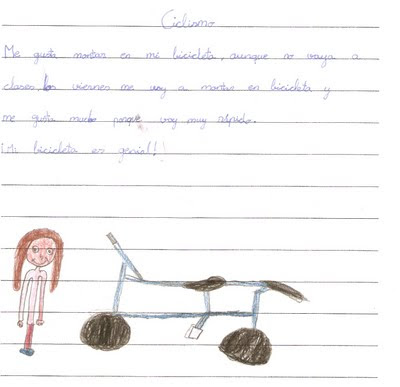 Ciclismo
Me gusta montar en mi bicicleta, aunque no vaya a
clases, los viernes me voy a montar en bicicleta y
me gusta mucho porque voy muy rápido.
¡Mi bicicleta es genial!!